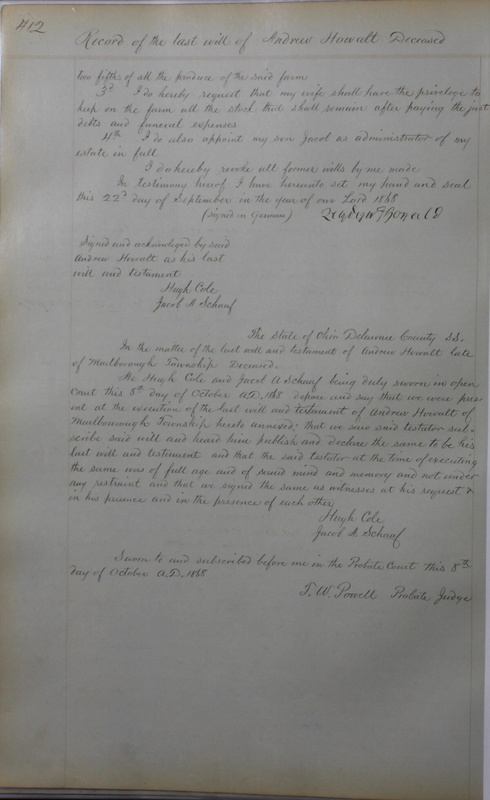 412
Record of the last will of Andrew Howalt Deceased
two fifths of all the produce of the said farm
3d I do hereby request that my wife shall have the priveledge to
keep on the farm all the stock that shall remain after paying the just
debts and funeral expenses
4th I do also appoint my son Jacob as administrator of my
estate in full
I do hereby revoke all former wills by me made
In testimony hereof I have hereunto set my hand and seal
this 22d day of September in the year of our Lord 1868
(Signed in German)
Signed and acknowledged by said
Andrew Howalt as his last
will and testament
Hugh Cole
Jacob A Schauf
The State of Ohio Delaware County SS.
In the matter of the last will and testament of Andrew Howalt late
of Marlborough Township Deceased.
We Hugh Cole and Jacob A Schauf being duly sworn in open
Court this 8th day of October A.D. 1868 depose and say that we were pres-
ent at the execution of the last will and testament of Andrew Howalt of
Marlborough Township hereto annexed; that we saw said testator sub-
scribe said will and heard him publish and declare the same to be his
last will and testament and that the said testator at the time of executing
the same was of full age and of sound mind and memory and not under
any restraint and that we signed the same as witnesses at his request &
in his presence and in the presence of each other
Hugh Cole
Jacob A. Schauf
Sworn to and subscribed before me in the Probate Court this 8th
day of October A.D. 1868
T. W. Powell Probate Judge